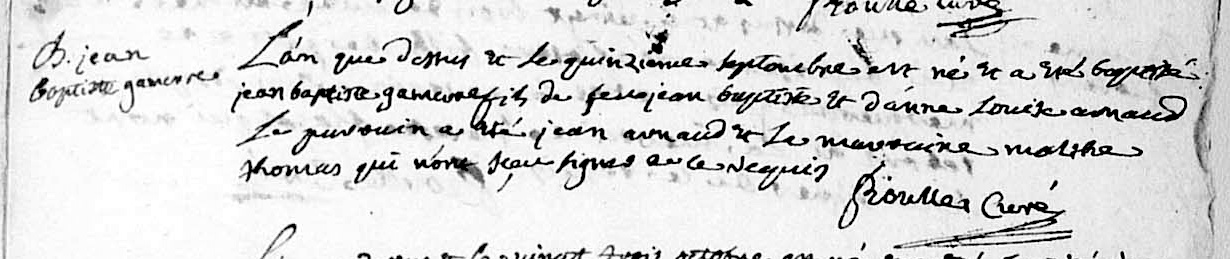 Rioulle Curé
B. jean
baptiste gamerre
L'an que dessus et le quinzieme septembre est né et a eté baptisé
jean baptiste gamerre fils de feu jean baptiste et d'anne Louise arnaud
Le parrain a eté jean arnaud et la marraine marthe
thomas qui n'ont sçeu signer de ce requis
Rioulle Curé
et le vingt trois octobre est né